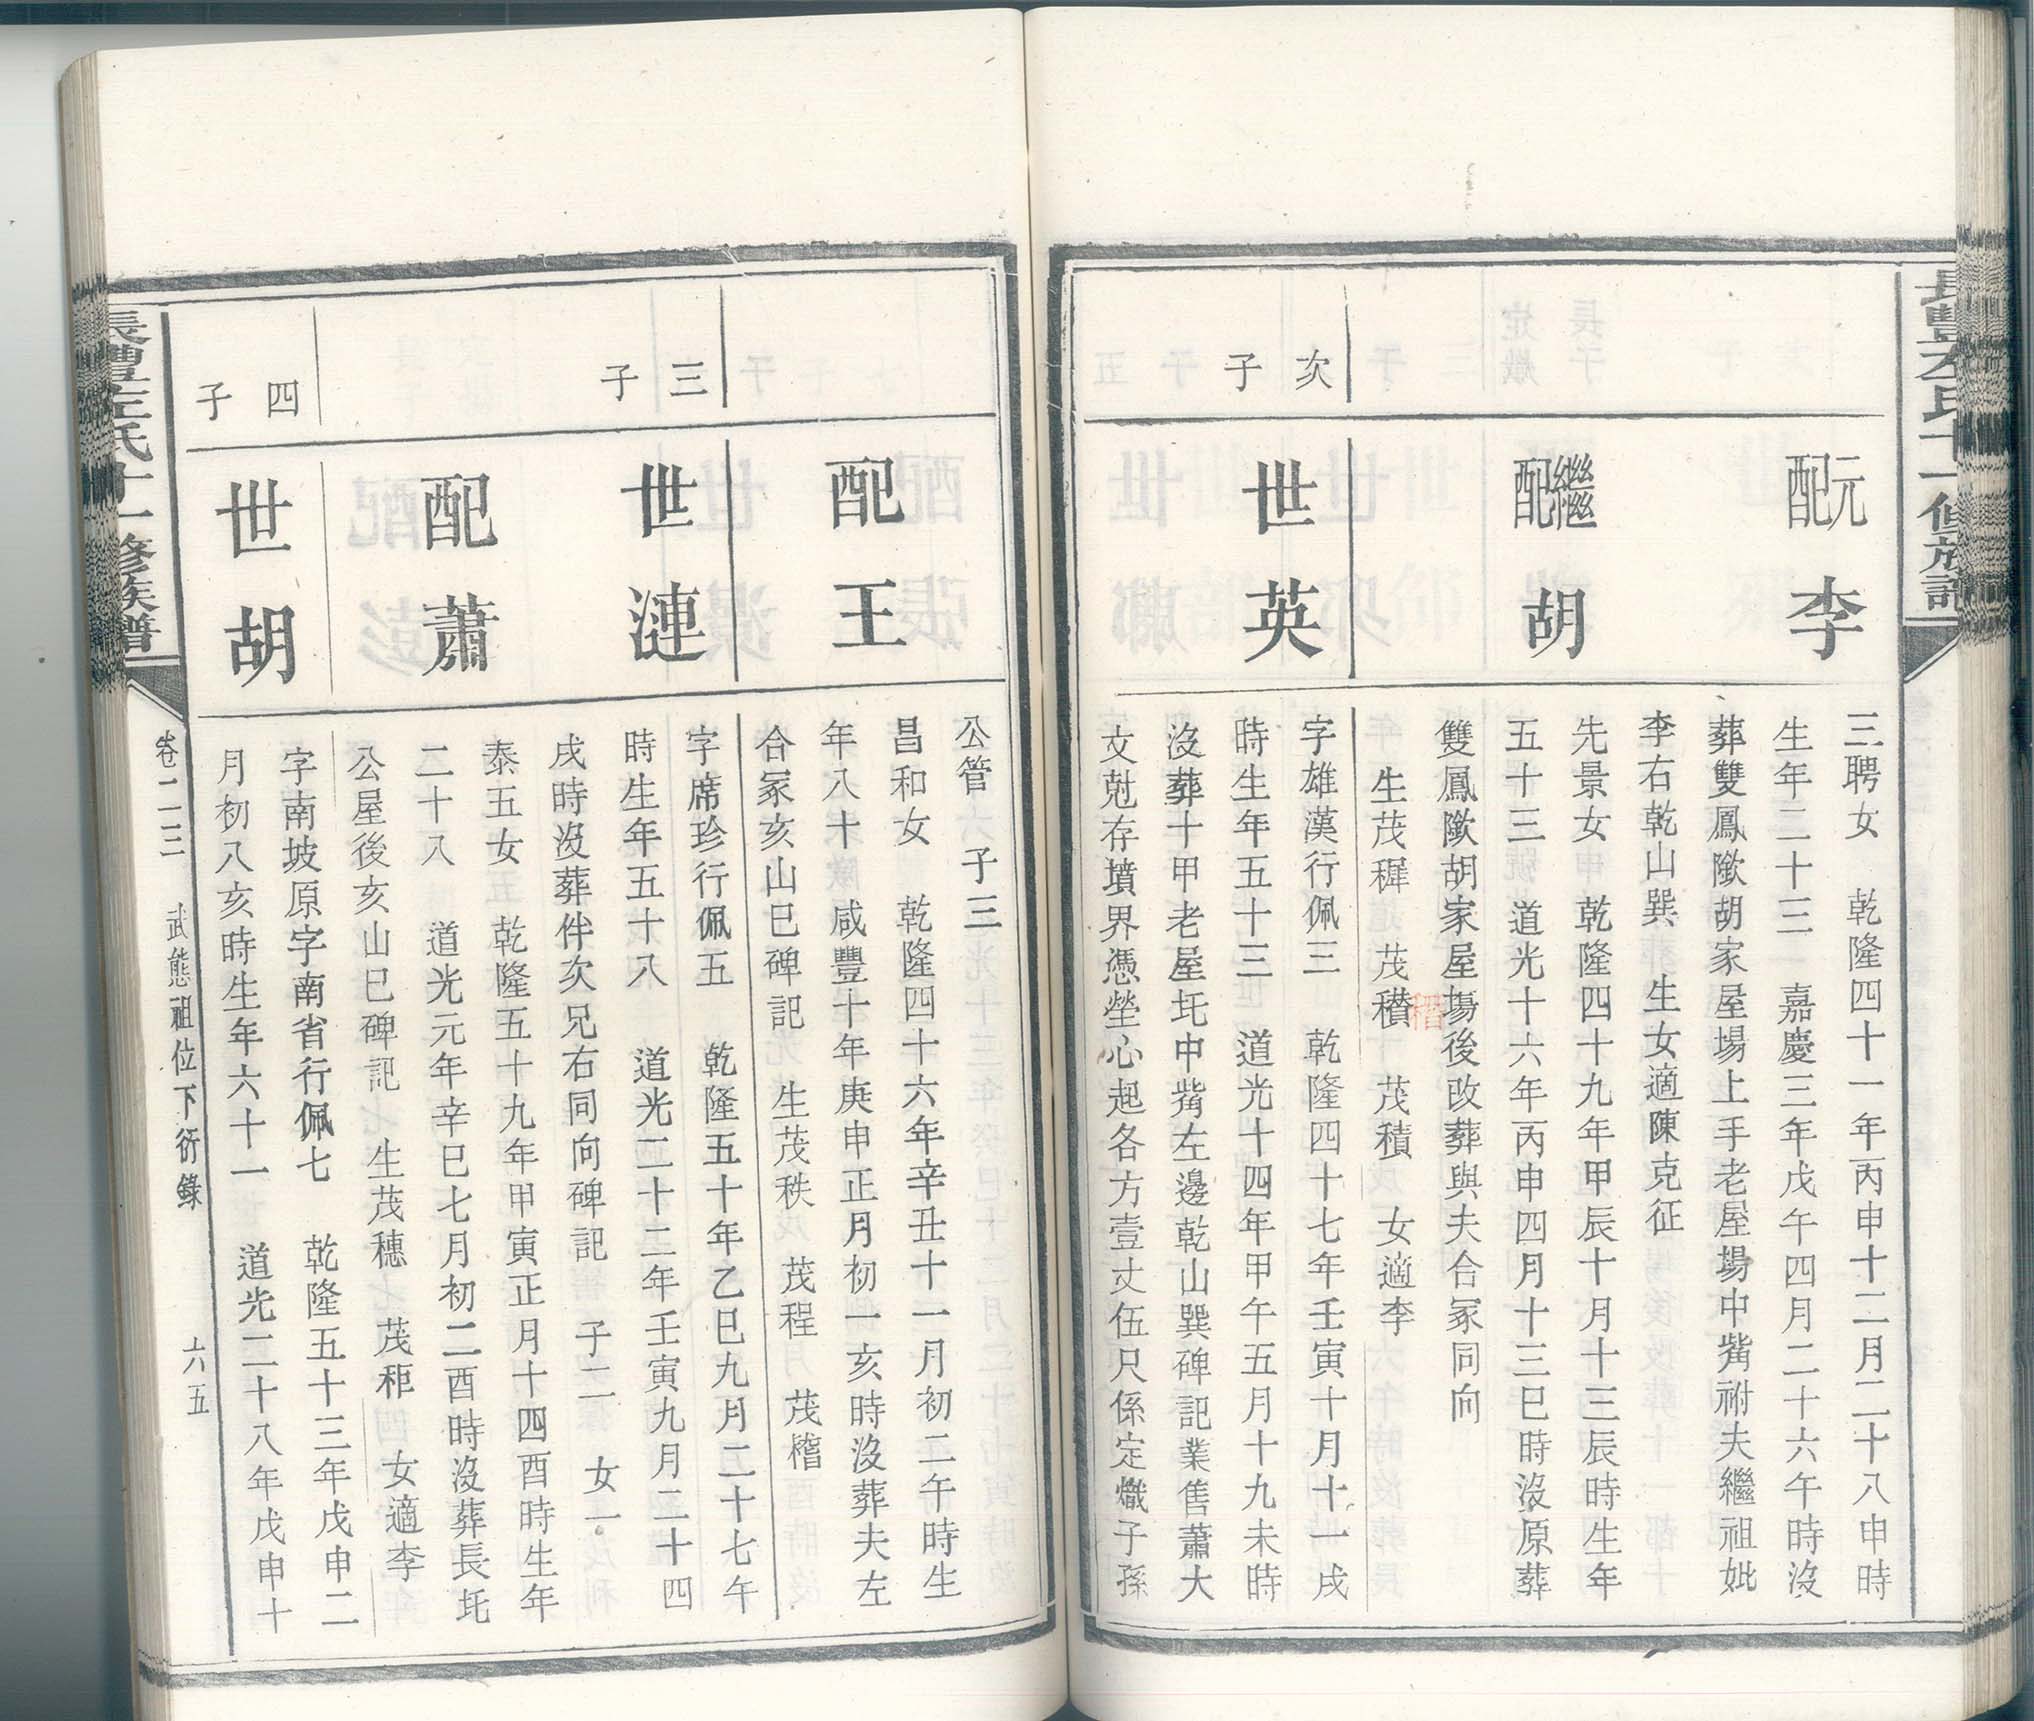 元配 李
三聘女 乾隆四十一年丙申十二月二十八申時
生年二十三 嘉慶三年戊午四月二十六午時沒
葬雙鳳歘胡家屋場上手老屋場中觜祔夫繼祖妣
李右乾山巽 生女適陳克征
繼配 胡
先景女 乾隆四十九年甲辰十月十三辰時生年
五十三 道光十六年丙申四月十三巳時沒原葬
雙鳳歘胡家屋場後改葬與夫合冢同向
生茂穉 茂穳 茂積 女適李
稽
次子
世英
字雄漢行佩三 乾隆四十七年壬寅十月十一戌
時生年五十三 道光十四年甲午五月十九未時
沒葬十甲老屋圫中觜左邊乾山巽碑記業售蕭大
文尅存墳界憑塋心起各方壹丈伍尺係定熾子孫
公管 子三
配王
昌和女 乾隆四十六年辛丑十一月初二午時生
年八十 咸豐十年庚申正月初一亥時沒葬夫左
合冢亥山巳碑記 生茂秩 茂程 茂稽
三子
世漣
字席珍行佩五 乾隆五十年乙巳九月二十七午
時生年五十八 道光二十二年壬寅九月二十四
戌時沒葬伴次兄右同向碑記 子二 女一
配蕭
泰五女 乾隆五十九年甲寅正月十四酉時生年
二十八 道光元年辛巳七月初二酉時沒葬長圫
公屋後亥山巳碑記 生茂穗 茂秬 女適李
四子
世胡
字南坡原字南省行佩七 乾隆五十三年戊申二
月初八亥時生年六十一 道光二十八年戊申十
長豐左氏十一修族譜
卷二三 武態祖位下衍錄 六五